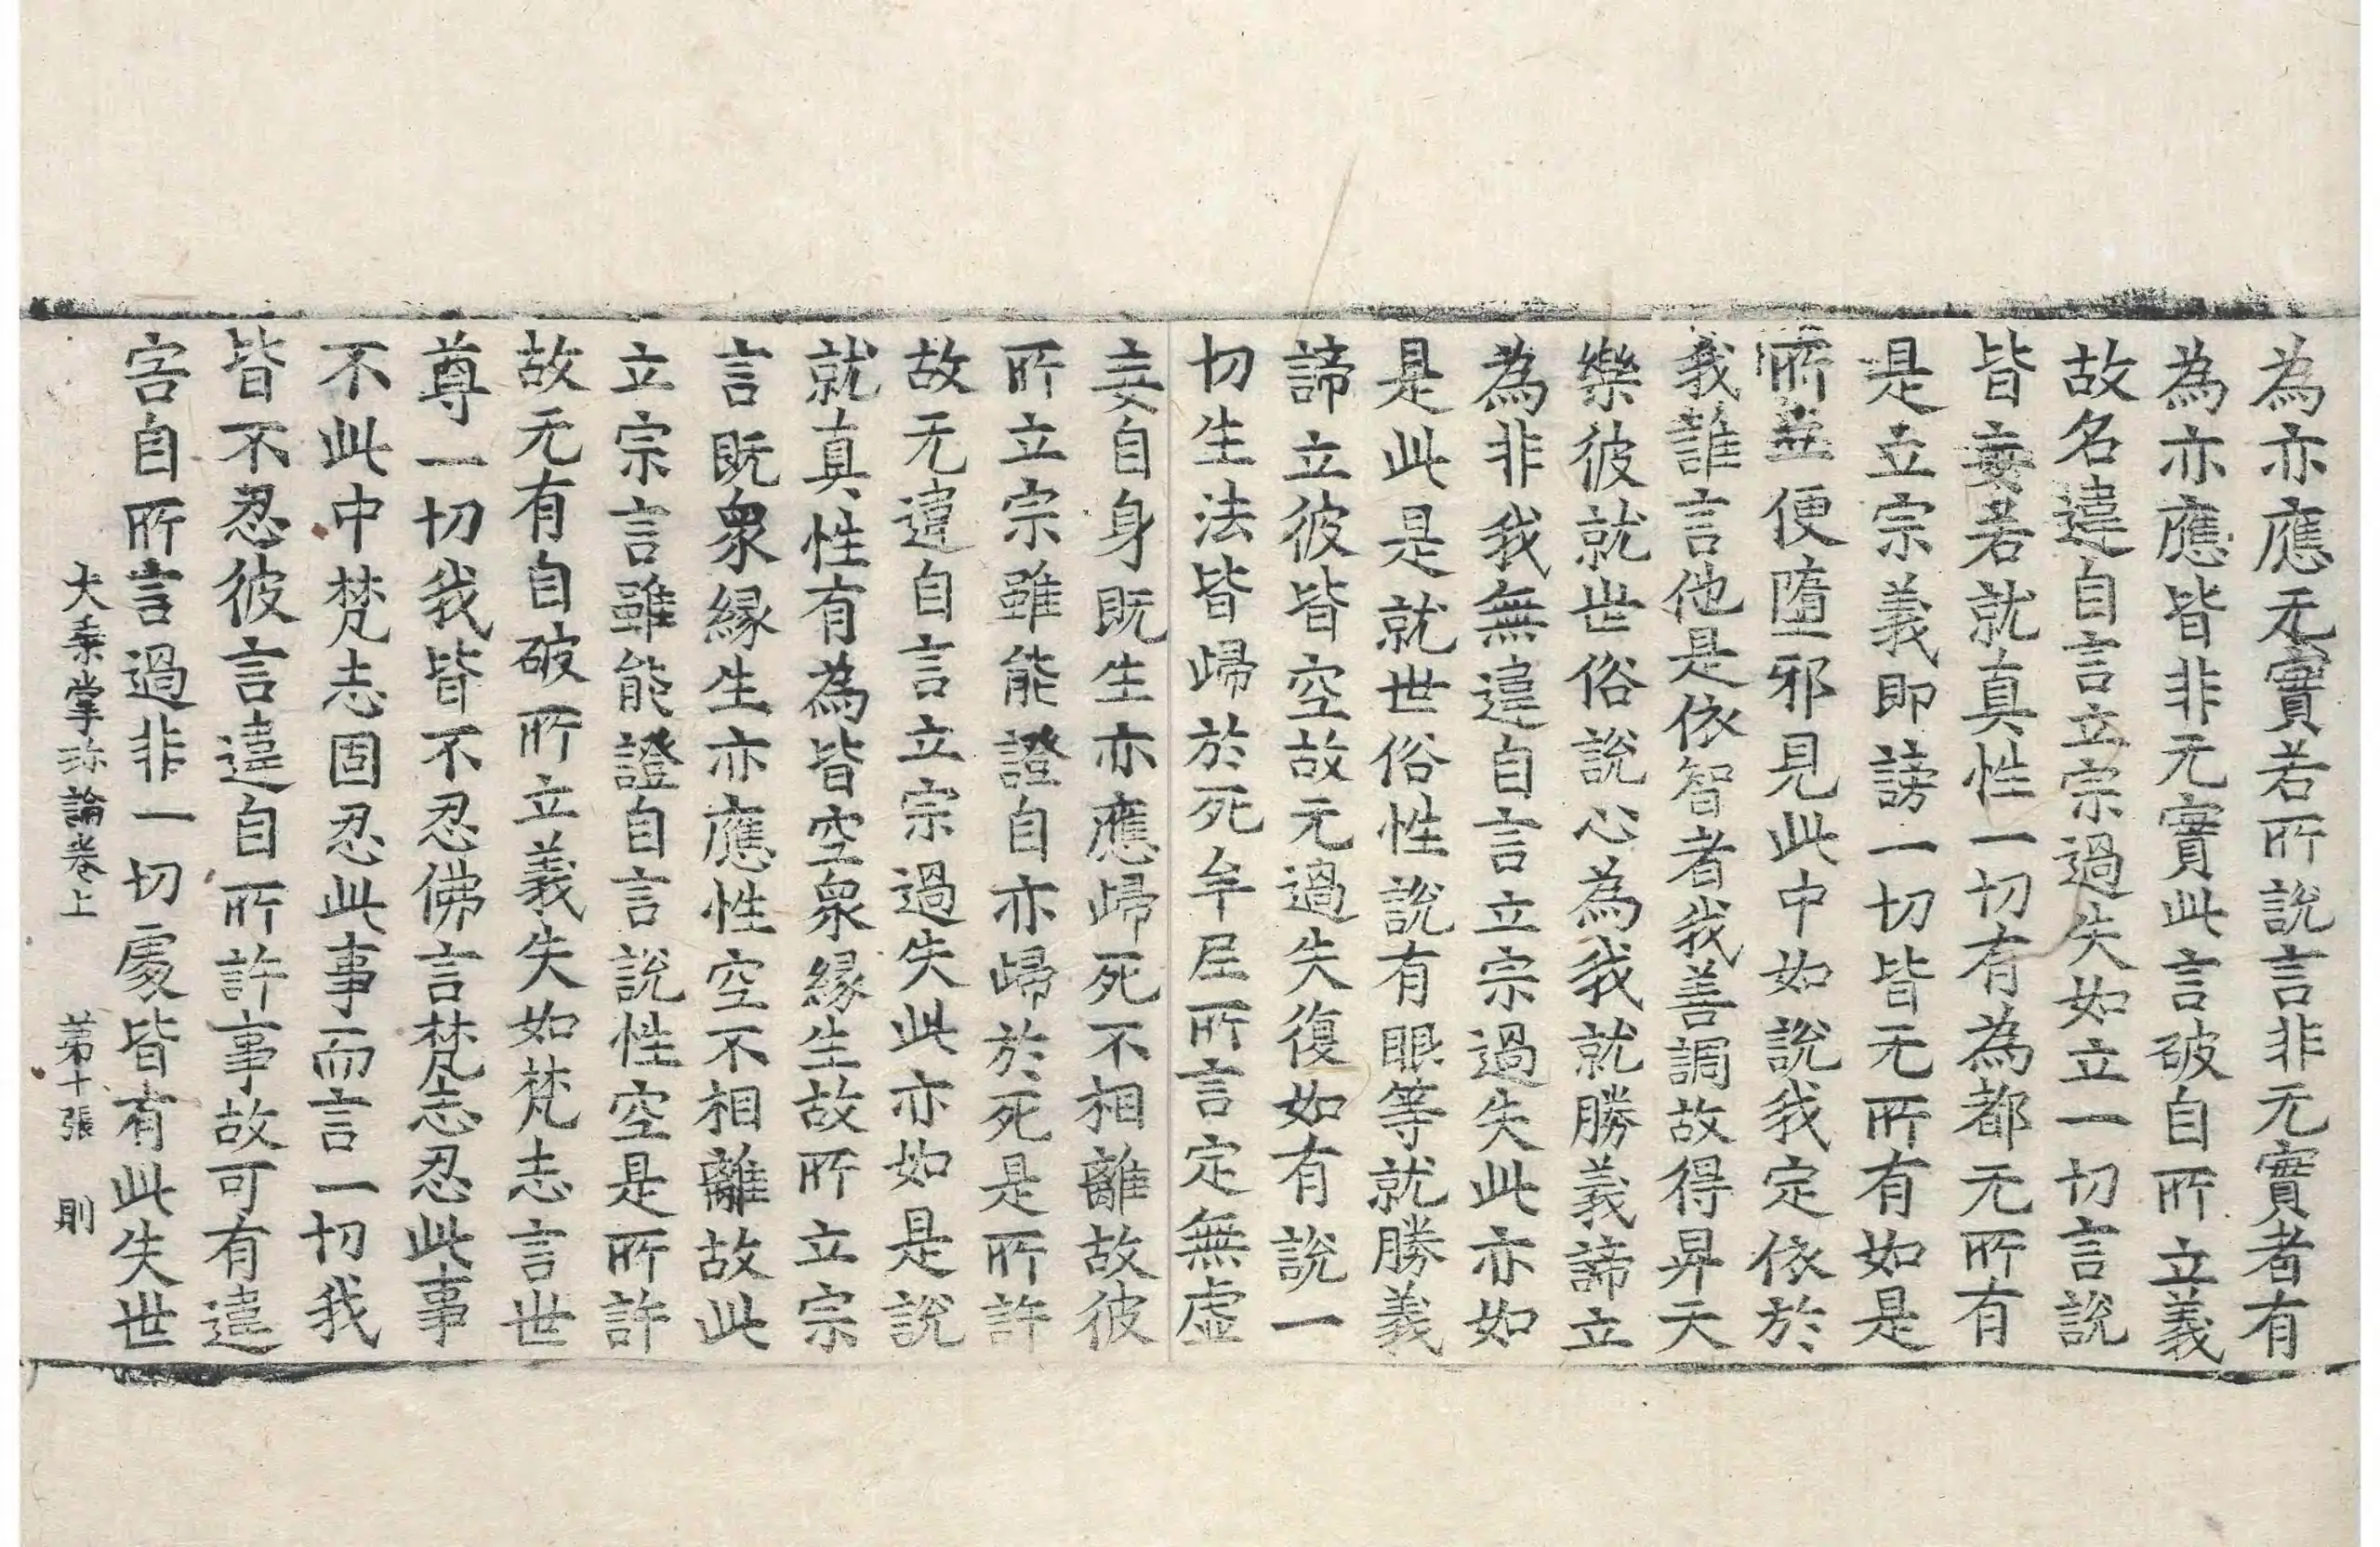 為亦應无實若所說言非无實者有
為亦應皆非无實此言破自所立義
故名違自言立宗過失如立一切言說
皆妄若就真性一切有為都无所有
是立宗義即謗一切皆无所有如是
所立便墮邪見此中如說我定依於
我誰言他是依智者我善調故得昇天
樂彼就世俗說心為我就勝義諦立
為非我無違自言立宗過失此亦如
是此是就世俗性說有眼等就勝義
諦立彼皆空故无過失復如有說一
切生法皆歸於死牟尼所言定無虛
妄自身既生亦應歸死不相離故彼
所立宗雖能證自亦歸於死是所許
故无違自言立宗過失此亦如是說
就真性有為皆空衆緣生故所立宗
言既衆緣生亦應性空不相離故此
立宗言雖能證自言說性空是所許
故无有自破所立義失如梵志言世
尊一切我皆不忍佛言梵志忍此事
不此中梵志固忍此事而言一切我
皆不忍彼言違自所許事故可有違
害自所言過非一切處皆有此失世
大乗掌珎論卷上 第十張 則